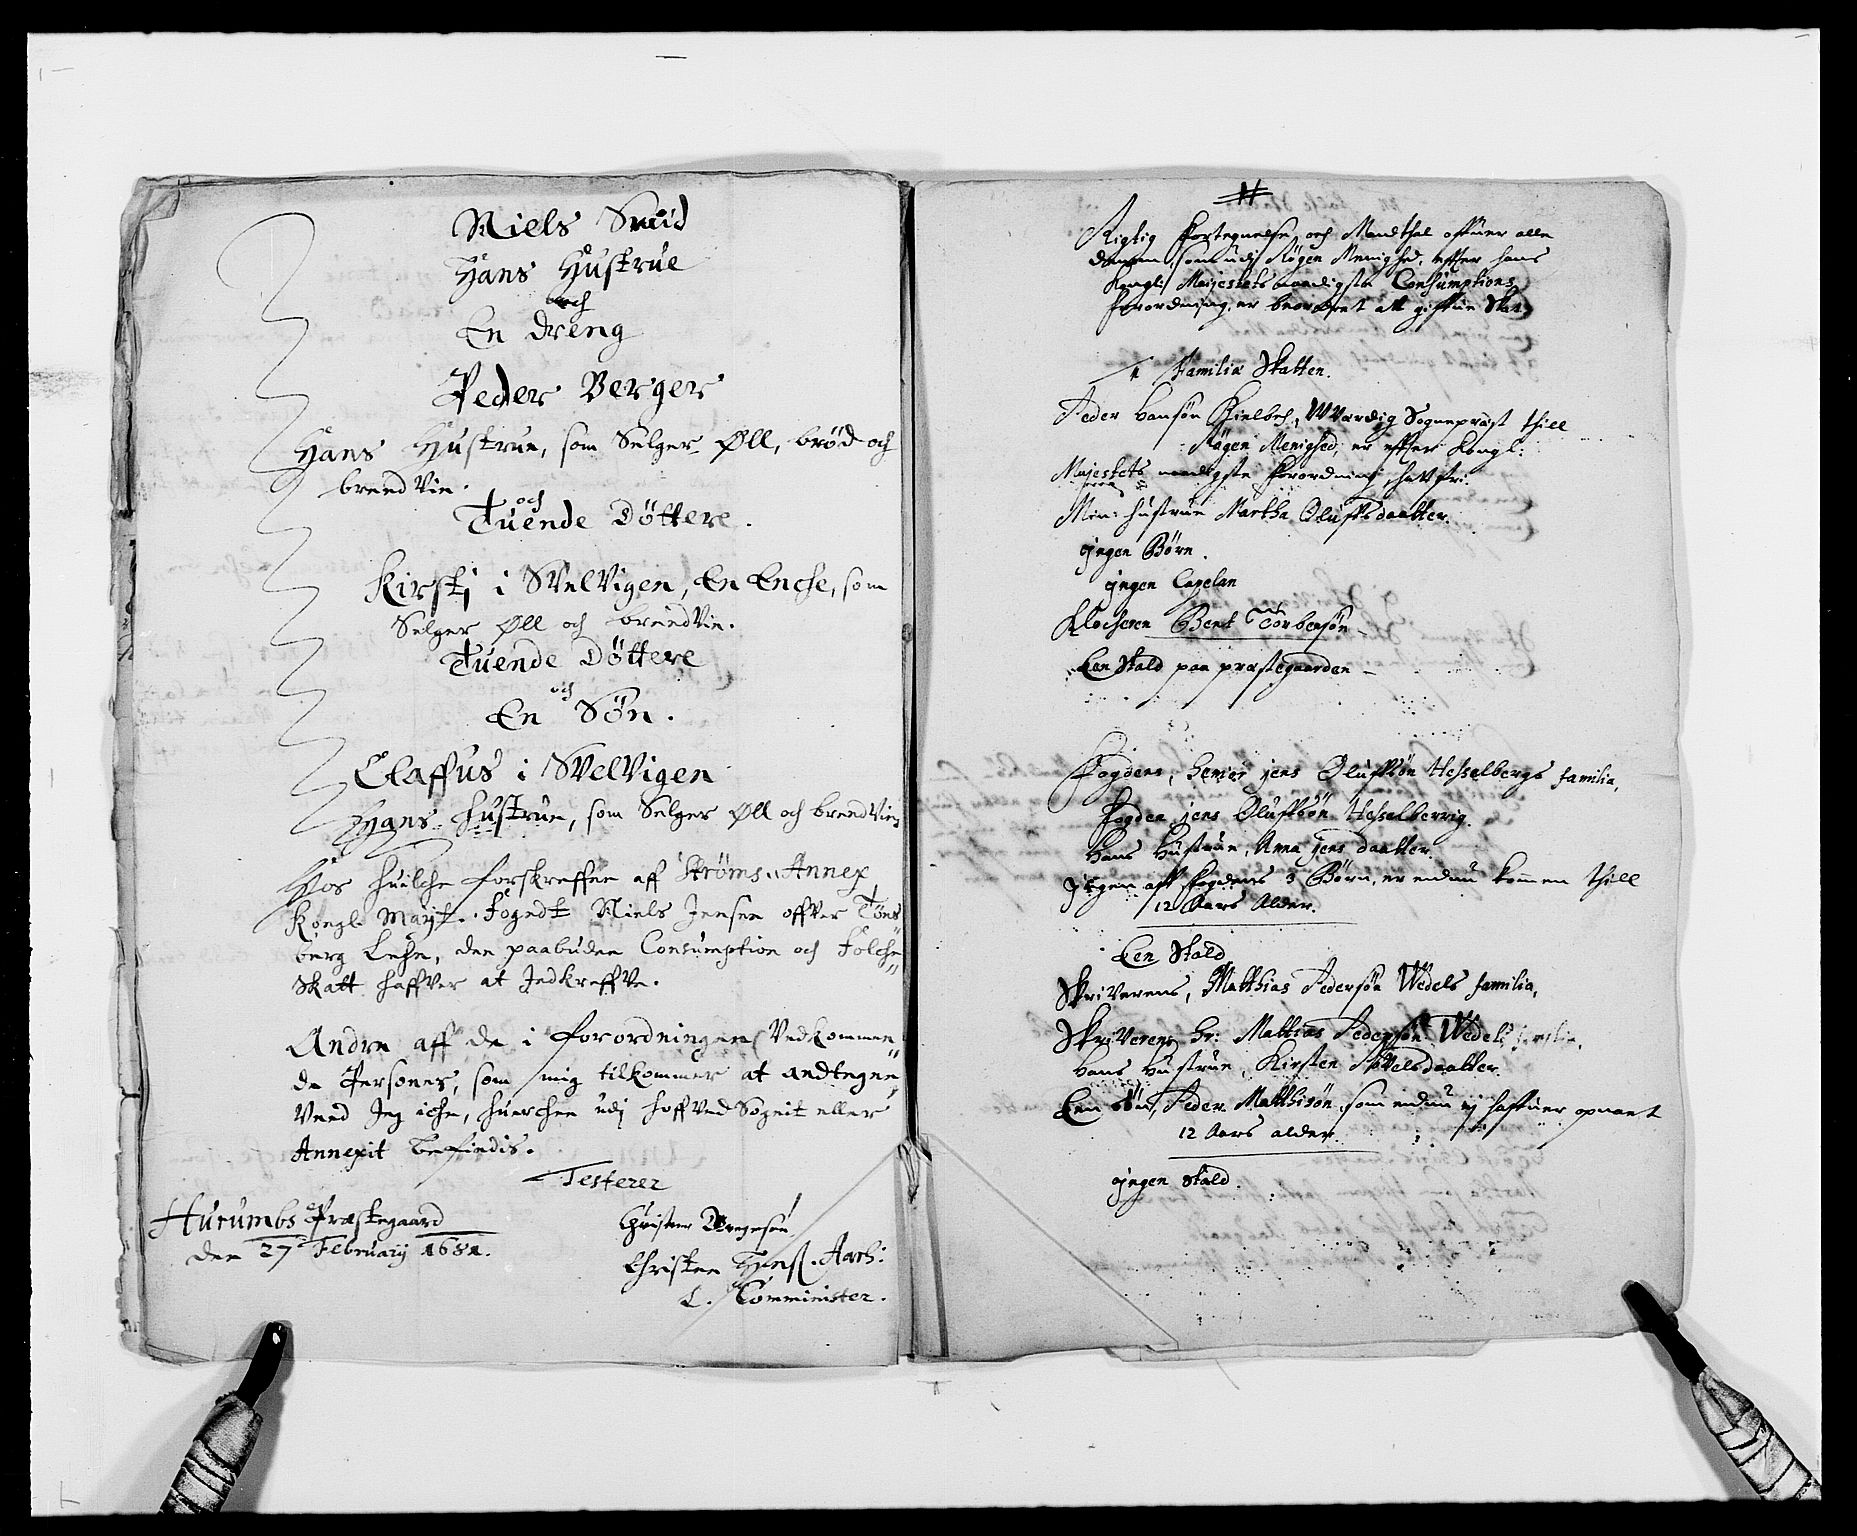 Niels Smid
Hans Hustrue
och
En dreng
Peder Berger
Hans Hustrue, som Selger Øll, brød och
brendVin.
och
Tuende Döttere.
Kirstj i SvelVigen, En Enche, som
Selger Øll och brendVin.
Tuende Döttere
och
En Søn.
Elaffus i SvelVigen
Hans hustrue, som Selger Øll och brendVin
Hos huilche forskreffne aff Strøms Annex
Kongl. Mayt. Fogedt Niels Jensen offver Tøns
berg Lehn, den paabuden Consumption och Folche
Skatt haffver at Indkreffve.
Andre aff de i forordningen Vedkommen
de Personer, som mig tilkommer at andtegne,
Veed Jeg iche, huerchen udj hoffVed Sognit eller
Annexit befindis.
Testerer
Hurumbs Præstegaard
den 27 February 1681.
Christen
Christen Hansl. Aarh:
L. Comminister.
Rigtig Fortegnelse och Mandthal offuer alle
dennem, som udj Røgen Menighed, effter hans
Kongl: Majestets naadigste Consumptions
forordning, er beordret att giffue Skat
1 Familie Skatten.
Peder Hansøn Hielbech, WVærdig Sognepræst thill
Røgen Menighed, er effter Kongl:
Majestets naadigste forordning, schatfri.
Min hustrue Martha Oluffsdaatter.
jngen Børn.
jngen Capelan
Klocheren Bent Torbensøn
Een Stald paa præstegaarden
Fogdens, jens Oluffsøn Hesselbergs familia,
Fogden jens Oluffsøn Hesselberrig.
Hans Hustrue, Anna jens daatter.
jngen aff Fogdens 3 Børn, er endnu kommen thill
12 Aars Alder.
Een Stald
SkriVerens, Matthias Pedersøn Wedels familia,
SkriVeren Hr: Mattias Pedersøn Wedels familia.
Hans Hustrue, Kirsten Povelsdaatter.
Een Søn, Peder Matthisøn, som endnu ej haffuer opnaaet
12 Aars alder.
jngen Stald.